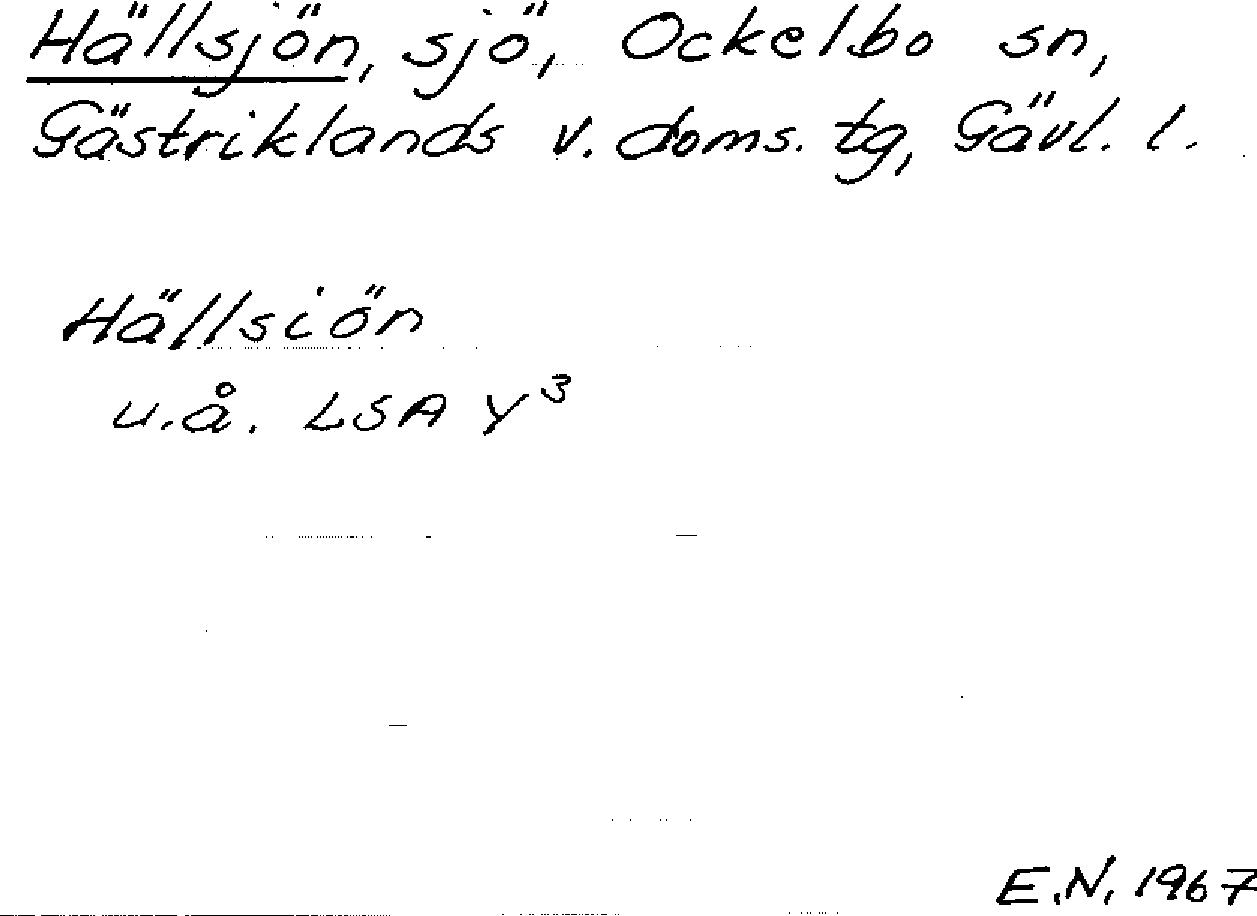 Hällsjön, sjö, Ockelbo sn,
Gästriklands v. doms. tg, Gävl. l.
Hällsiön
u.å. LSA Y³
E.N. 1967